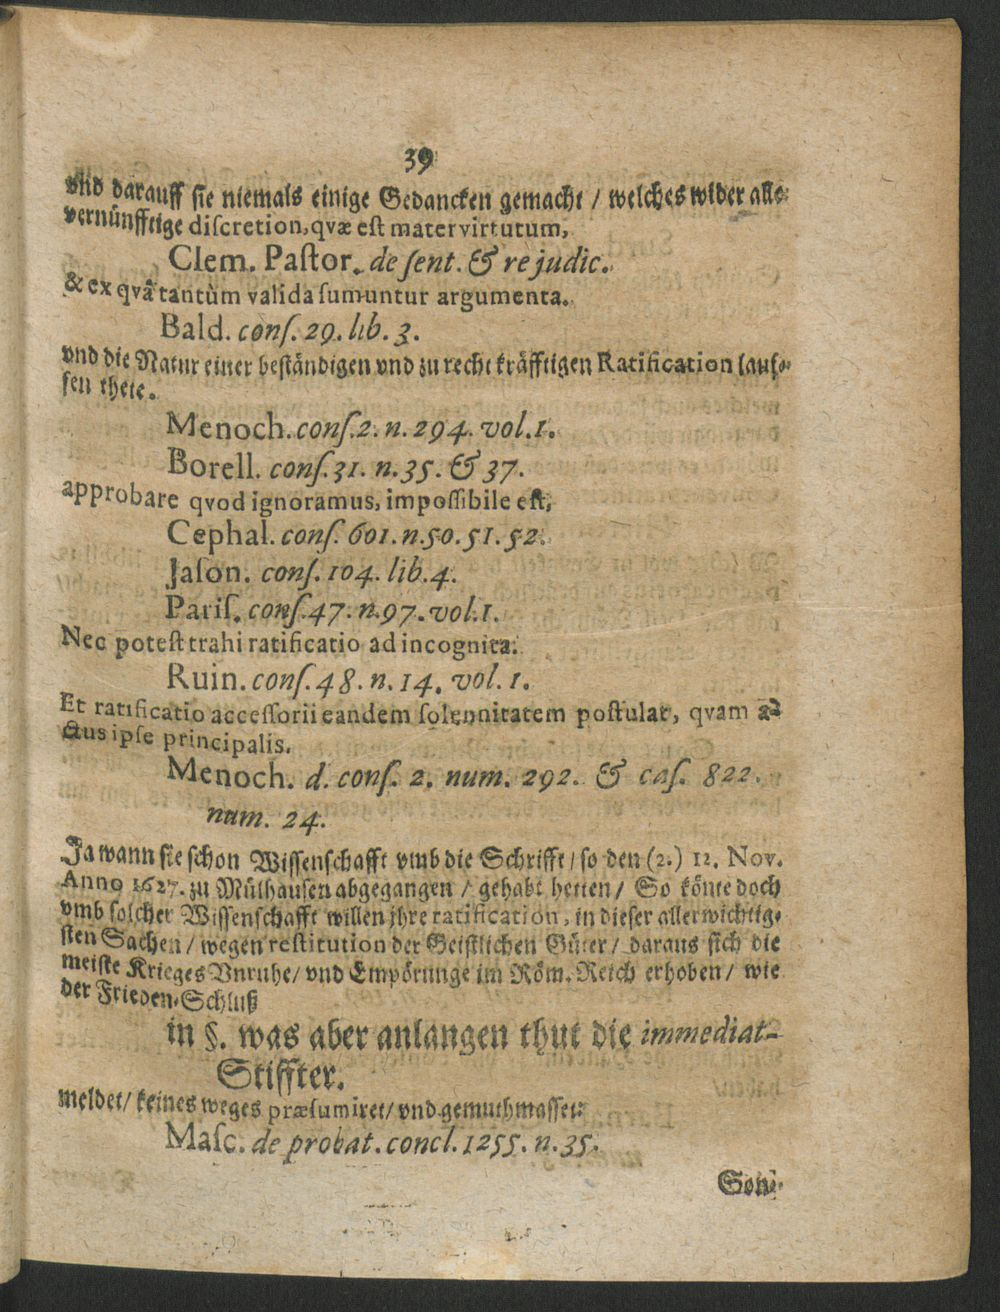 39
vnd darauff sie niemals einige Gedancken gemacht / welches wider alle
vernünfftige discretion, qvæ est mater virtutum,
Clem. Pastor. de sent. & re judic.
& ex qvâ tantùm valida sumuntur argumenta.
Bald. cons. 29. lib. 3.
vnd die Natur einer beständigen vnd zu recht kräfftigen Ratification lauf-
fen thete.
Menoch. cons. 2. n. 294. vol. 1.
Borell. cons. 31. n. 35. & 37.
approbare qvod ignoramus, impossibile est,
Cephal. cons. 601. n. 50. 51. 52.
Jason. cons. 104. lib. 4.
Paris. cons. 47. n. 97. vol. 1.
Nec potest trahi ratificatio ad incognita.
Ruin. cons. 48. n. 14. vol. 1.
Et ratificatio accessorii eandem solennitatem postulat, qvam a-
ctus ipse principalis.
Menoch. d. cons. 2. num. 292. & cas. 822.
num. 24.
Ja wann sie schon Wissenschafft vmb die Schrifft / so den (2.) 12. Nov.
Anno 1627. zu Mülhausen abgegangen / gehabt hetten / So könte doch
vmb solcher Wissenschafft willen jhre ratification, in dieser allerwichtig-
sten Sachen / wegen restitution der Geistlichen Güter / daraus sich die
meiste Krieges Vnruhe / vnd Empörunge im Röm. Reich erhoben / wie
der Frieden-Schluß
in §. was aber anlangen thut die immediat-
Stiffter.
meldet / keines weges præsumiret / vnd gemuthmasset:
Masc. de probat. concl. 1255. n. 35.